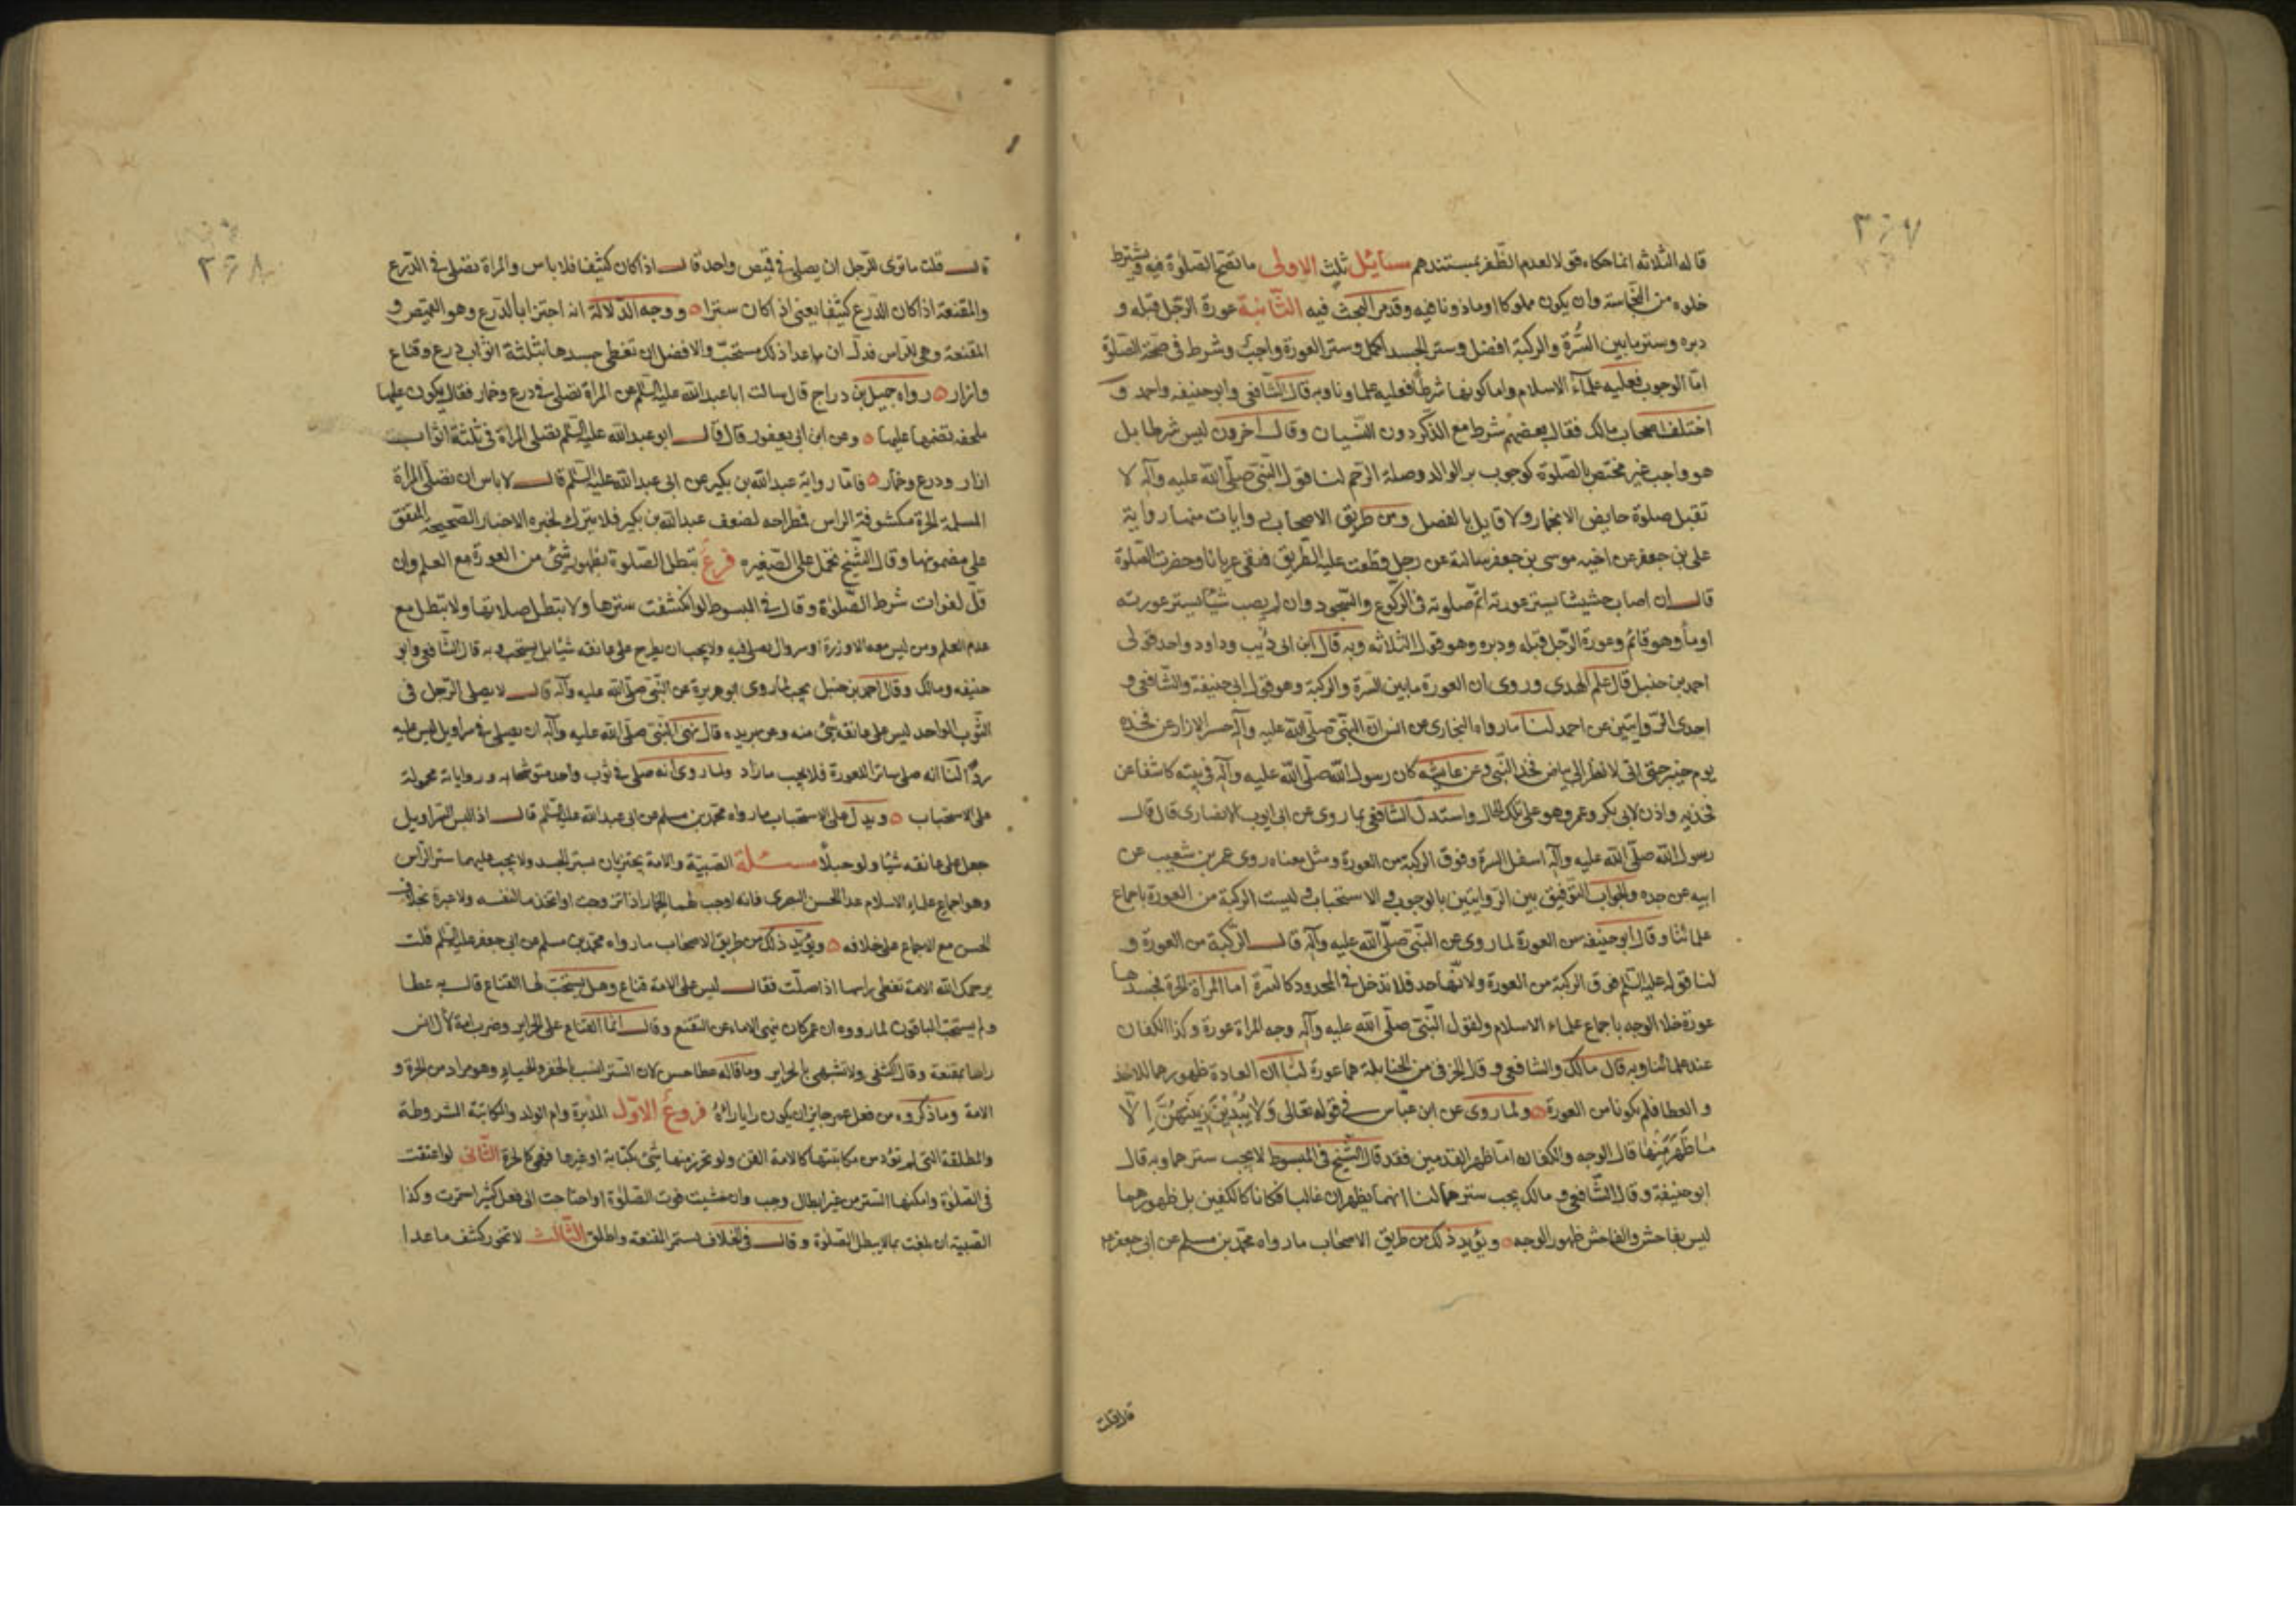 ٣٦٧
قاله الثلاثة انما حكاه قولا لعدم الظفر بمستندهم مسائل ثلث الاولى ما تصح الصلوة فيه يشترط
خلوه من النجاسة وان يكون مملوكا او ماذونا فيه وقد مر البحث فيه الثانية عورة الرجل قبله و
دبره وستر ما بين السرة والركبة افضل وستر الجسد اكمل وستر العورة واجب وشرط فى صحة الصلوة
اما الوجوب فعليه علماء الاسلام واما كونها شرطا فعليه علماونا وبه قال الشافعى وابو حنيفه واحمد و
اختلف اصحاب مالك فقال بعضهم شرط مع الذكر دون النسيان وقال اخرون ليس شرطا بل
هو واجب غير مختص بالصلوة كوجوب بر الوالد وصلة الرحم لنا قول النبى صلى الله عليه وآله لا
تقبل صلوة حايض الا بخمار ولا قايل بالفصل ومن طريق الاصحاب روايات منها رواية
على بن جعفر عن اخيه موسى بن جعفر سالته عن رجل قطعت عليه الطريق فبقى عريانا وحضرت الصلوة
قال ان اصاب حشيشا يستر عورته اتم صلوته فى الركوع والسجود وان لم يصب شيئا يستر عورته
اومأ وهو قائم وعورة الرجل قبله ودبره وهو قول الثلاثه وبه قال ابن ابى ذيب وداود واحد قولى
احمد بن حنبل قال علم الهدى وروى ان العورة ما بين السرة والركبة وهو قول ابى حنيفة والشافعى و
احدى الروايتين عن احمد لنا ما رواه البخارى عن انس ان النبى صلى الله عليه وآله حسر الازار عن فخذه
يوم خيبر حتى انى لانظر الى بياض فخذ النبى وعن عايشه كان رسول الله صلى الله عليه وآله فى بيته كاشفا عن
فخذيه واذن لابى بكر وعمر وهو على تلك الحال واستدل الشافعى بما روى عن ابى ايوب الانصارى قال قال
رسول الله صلى الله عليه وآله اسفل السرة وفوق الركبة من العورة ومثل معناه روى عمر بن شعيب عن
ابيه عن جده والجواب التوفيق بين الروايتين بالوجوب والاستحباب وليست الركبة من العورة باجماع
علمائنا وقال ابو حنيفه من العورة لما روى عن النبى صلى الله عليه وآله قال الركبة من العورة و
لنا قوله عليه السلم فوق الركبة من العورة ولانها حد فلا تدخل فى المحدود كالسرة اما المراة الحرة فجسدها
عورة خلا الوجه باجماع علماء الاسلام ولقول النبى صلى الله عليه وآله وجه المراة عورة وكذا الكفان
عند علمائنا وبه قال مالك والشافعى وقال الخرقى من الحنابلة هما عورة لنا ان العادة ظهورهما للاخذ
والعطا فلم يكونا من العورة ولما روى عن ابن عباس فى قوله تعالى وَلا يُبْدِينَ زِينَتَهُنَّ اِلّا
مٰا ظَهَرَ مِنْهٰا قال الوجه والكفان اما ظهر القدمين فقد قال الشيخ فى المبسوط لا يجب سترهما وبه قال
ابو حنيفة وقال الشافعى ومالك يجب سترهما لنا انهما يظهران غالبا فكانا كالكفين بل ظهورهما
ليس بفاحش والفاحش ظهور الوجه ويؤيد ذلك من طريق الاصحاب ما رواه محمد بن مسلم عن ابى جعفر
قال قلت
٣٦٨
قال قلت ما ترى للرجل ان يصلى فى قميص واحد قال اذا كان كثيفا فلا باس والمراة تصلى فى الدرع
والمقنعة اذا كان الدرع كثيفا يعنى اذا كان ستيرا ووجه الدلالة انه اجتزا بالدرع وهو القميص و
المقنعة وهى للراس فدل ان ما عدا ذلك مستحب والافضل ان تغطى جسدها بثلثة اثواب درع وقناع
وازار رواه جميل بن دراج قال سالت ابا عبد الله عليه السلم عن المراة تصلى فى درع وخمار فقال يكون عليها
ملحفه تضمها عليها وعن ابن ابى يعفور قال قال ابو عبد الله عليه السلم تصلى المراة فى ثلثة اثواب
ازار ودرع وخمار فاما رواية عبد الله بن بكير عن ابى عبد الله عليه السلم قال لا باس ان تصلى المراة
المسلمة الحرة مكشوفة الراس فمطرحه لضعف عبد الله بن بكير فلا يترك لخبره الاخبار الصحيحه المتفق
على مضمونها وقال الشيخ تحمل على الصغيره فرع تبطل الصلوة بظهور شئ من العورة مع العلم وان
قل لفوات شرط الصلوة وقال فى المبسوط لو انكشفت سترها ولا تبطل صلاتها ولا تبطل مع
عدم العلم ومن ليس معه الا وزرة او سروال يصلى فيه ولا يجب ان يطرح على عاتقه شيئا بل يستحب وبه قال الشافعى وابو
حنيفه ومالك وقال احمد بن حنبل يجب لما روى ابو هريرة عن النبى صلى الله عليه وآله قال لا يصلى الرجل فى
الثوب الواحد ليس على عاتقه شئ منه وعن بريده قال نهى النبى صلى الله عليه وآله ان يصلى فى سراويل ليس عليه
رداء لنا انه صلى ساترا للعورة فلا يجب ما زاد ولما روى انه صلى فى ثوب واحد متوشحا به ورواياته محمولة
على الاستحباب ويدل على الاستحباب ما رواه محمد بن مسلم عن ابى عبد الله عليه السلم قال اذا لبس السراويل
جعل على عاتقه شيئا ولو حبلا مسئلة الصبية والامة يجتزيان بستر الجسد ولا يجب عليهما ستر الراس
وهو اجماع علماء الاسلام عدا الحسن البصرى فانه اوجب لهما الخمار اذا تزوجت او اتخذها لنفسه ولا عبرة بخلاف
الحسن مع الاجماع على خلافه ويؤيد ذلك من طريق الاصحاب ما رواه محمد بن مسلم عن ابى جعفر عليه السلم قلت
يرحمك الله الامة تغطى راسها اذا صلت فقال ليس على الامة قناع وهل يستحب لها القناع قال به عطا
ولم يستحب الباقون لما رووه ان عمر كان ينهى الاماء عن التقنع وقال انما القناع على الحراير وضرب امة لآل انس
راها بمقنعة وقال اكشفى ولا تتشبهى بالحراير وما قاله عطا حسن لان الستر انسب بالخفر والحياء وهو مراد من الحرة و
الامة وما ذكروه من فعل عمر جايز ان يكون رايا رآهُ فروع الاول المدبرة وام الولد والمكاتبة المشروطة
والمطلقة التى لم تؤد من مكاتبتها كالامة القن ولو تحرر منها شئ بكتابة او غيرها فهى كالحرة الثانى لو اعتقت
فى الصلوة وامكنها الستر من غير ابطال وجب وان خشيت فوت الصلوة او احتاجت الى فعل كثير استمرت وكذا
الصبية ان بلغت بما لا يبطل الصلوة وقال فى الخلاف تستمر المقنعه واطلق الثالث لا تجوز كشف ما عدا